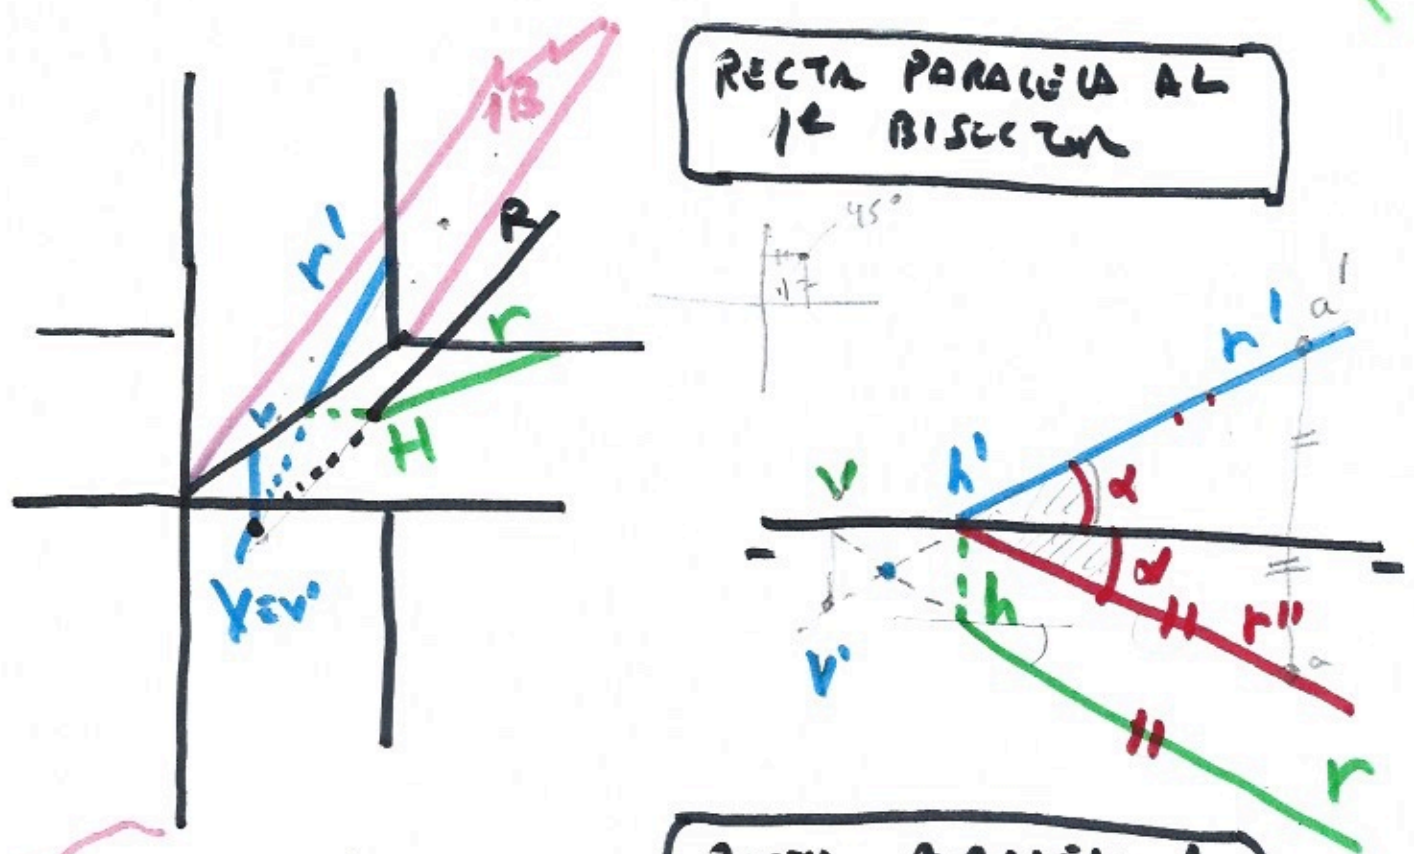 RECTA PARALELA AL
1er BISECTOR
1B
45°
r'
R
r
V
H
V≡v'
r'
a'
v
h'
α
α
h
r''
a
v'
r